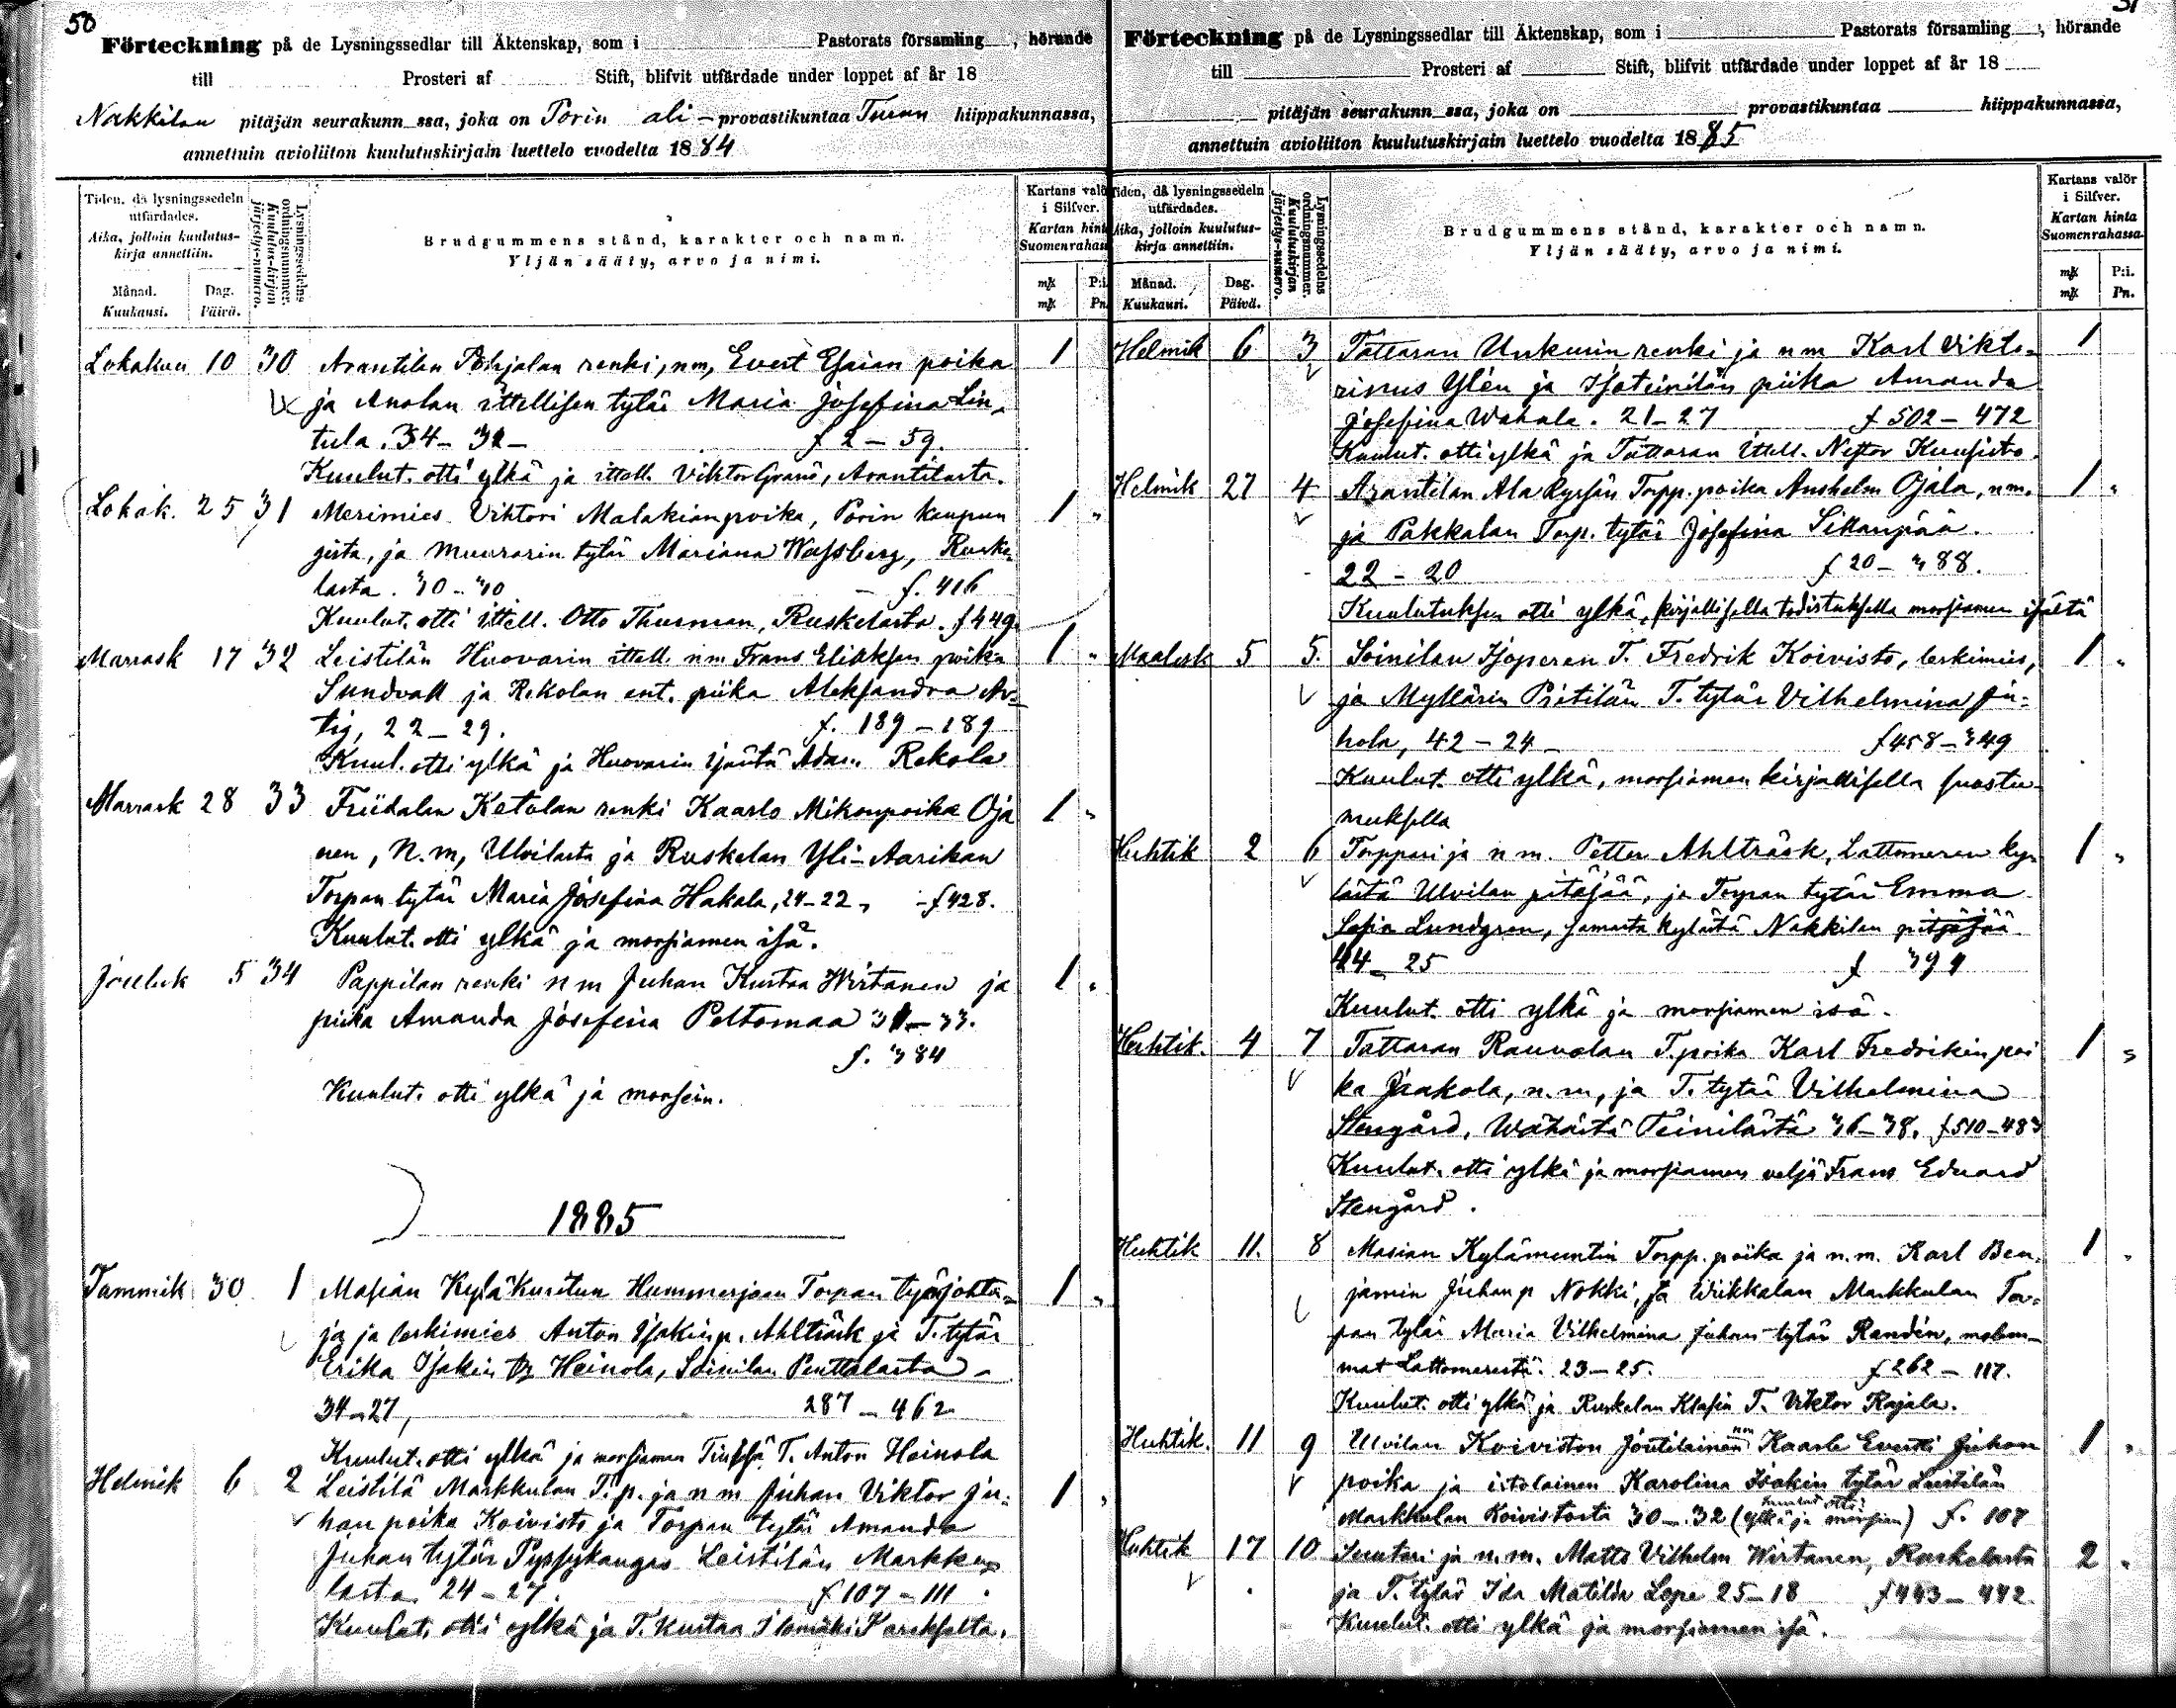 50
Förteckning på de Lysningssedlar till Äktenskap, som i Pastorats församling , hörande
till Prosteri af Stift, blifvit utfärdade under loppet af år 18
Nakkilan pitäjän seurakunn ssa, joka on Porin ali- provastikuntaa Turun hiippakunnassa,
annettuin avioliiton kuulutuskirjain luettelo vuodelta 1884
Tiden, då lysningssedeln utfärdades.
Aika, jolloin kuulutus-kirja annettiin.
Månad. Kuukausi.
Dag. Päivä.
Lysningssedelns ordningsnummer. Kuulutus-kirjan järjestys-numero.
Brudgummens stånd, karakter och namn.
Yljän sääty, arvo ja nimi.
Kartans valör i Silfver.
Kartan hinta Suomenrahassa
Lokakuu 10 30 Arantilan Pohjalan renki, nm, Evert Esaian poika 1
ja Anolan ittellisen tytär Maria Josefina Lin-
tula. 34-32- f 2-59.
Kuulut. otti ylkä ja ittell. Viktor Granö, Arantilasta.
Lokak. 25 31 Merimies Viktori Malakianpoika, Porin kaupun 1 "
gista, ja muurarin tytär Mariana Wassberg, Ruske-
lasta. 30-30. f. 416
Kuulut. otti ittell. Otto Thurman, Ruskelasta. f 449.
Marrask 17 32 Leistilän Huovarin ittell. nm Frans Eliaksen poika 1 "
Sundvall ja Rekolan ent. piika Aleksandra Ar-
tig, 22-29. f. 189-189
Kuul. otti ylkä ja Huovarin isäntä Adam Rekola
Marrask 28 33 Friidalan Ketolan renki Kaarlo Mikonpoika Oja 1 "
nen, N.m, Ulvilasta ja Ruskelan Yli-Aarikan
Torpan tytär Maria Josefina Hakala, 24-22, -f 428.
Kuulut. otti ylkä ja morsiamen isä.
Jouluk 5 34 Pappilan renki nm Juhan Kustaa Wirtanen ja 1 "
piika Amanda Josefina Peltomaa 31-33.
f. 384
Kuulut. otti ylkä ja morsein.
1885
Tammik 30 1 Masian Kylä Kusitun Hummerjoen Torpan työnjohta- 1 "
ja ja leskimies Anton Isakinp. Ahlträsk ja T. tytär
Erika Isakin tr Heinola, Soinilan Penttalasta
34-27, 287-462
Kuulut. otti ylkä ja morsiamen T. Anton Heinola
Helmik 6 2 Leistilä Markkulan T.p. ja nm Juhan Viktor Ju- 1 "
han poika Koivisto ja Torpan tytär Amanda
Juhan tytär Pyssykangas Leistilän Markku-
lasta 24-27. f 107-111.
Kuulut. otti ylkä ja T. Kustaa Ilomäki
51
Förteckning på de Lysningssedlar till Äktenskap, som i Pastorats församling , hörande
till Prosteri af Stift, blifvit utfärdade under loppet af år 18
pitäjän seurakunn ssa, joka on provastikuntaa hiippakunnassa,
annettuin avioliiton kuulutuskirjain luettelo vuodelta 1885
Tiden, då lysningssedeln utfärdades.
Aika, jolloin kuulutus-kirja annettiin.
Månad. Kuukausi.
Dag. Päivä.
Lysningssedelns ordningsnummer. Kuulutuskirjan järjestys-numero.
Brudgummens stånd, karakter och namn.
Yljän sääty, arvo ja nimi.
Kartans valör i Silfver.
Kartan hinta Suomenrahassa.
mk P:i. mk Pn.
Helmik 6 3 Tattaran Unkurin renki ja nm Karl Vikto- 1
rinus Ylén ja Isoteinilän piika Amanda
Josefina Wakala. 21-27 f 502-472
Kuulut. otti ylkä ja Tattaran Ittell. Nestor Kuusisto.
Helmik 27 4 Arantilan Ala Kyrsän Torpp. poika Anshelm Ojala, nm. 1 "
ja Pakkalan Torp. tytär Josefina Sillanpää.
22-20 f 20-388.
Kuulutuksen otti ylkä, kirjallisella todistuksella morsiamen isältä
Maalisk 5 5. Soinilan Isoperen T. Fredrik Koivisto, leskimies, 1 "
ja Myllärin Piitilän T. tytär Vilhelmina Ju-
hola, 42-24- f 458-349
Kuulut. otti ylkä, morsiamen kirjallisella suostu-
muksella
Huhtik 2 6 Torppari ja nm. Petter Ahlträsk, Lattomeren ky- 1 "
lästä Ulvilan pitäjää, ja Torpan tytär Emma
Sofia Lundgren, samasta kylästä Nakkilan pitäjää
44-25 f 391
Kuulut. otti ylkä ja morsiamen isä.
Huhtik. 4 7 Tattaran Rauvolan T.poika Karl Fredrikin poi 1 "
ka Jaakola, n.m, ja T. tytär Vilhelmina
Stengård, Wähästä Teinilästä 36-38. f 510-483
Kuulut. otti ylkä ja morsiamen veljä Frans Eduard
Stengård.
Huhtik 11. 8 Masian Kylämuntin Torpp. poika ja n.m. Karl Ben- 1 "
jamin Juhan p Nokki, ja Wiikkalan Markkulan Tor-
pan tytär Maria Vilhelmina Juhan tytär Randén, molem-
mat Lattomerestä. 23-25. f 262-117.
Kuulut. otti ylkä ja Ruskelan Klasin T. Viktor Rajala.
Huhtik. 11 9 Ulvilan Koiviston Joutilainen nm Kaarle Evertti Juhan 1 "
poika ja istolainen Karolina Isakin tytär Leistilän
Markkulan Koivistosta 30-32 (kuulut otti ylkä ja morsian) f. 107
Huhtik 17 10 Suutari ja n.m. Matts Vilhelm Wirtanen, Ruskelasta 2 "
ja T. tytär Ida Matilda Lope 25-18 f 443-442.
Kuulut. otti ylkä ja morsiamen isä.